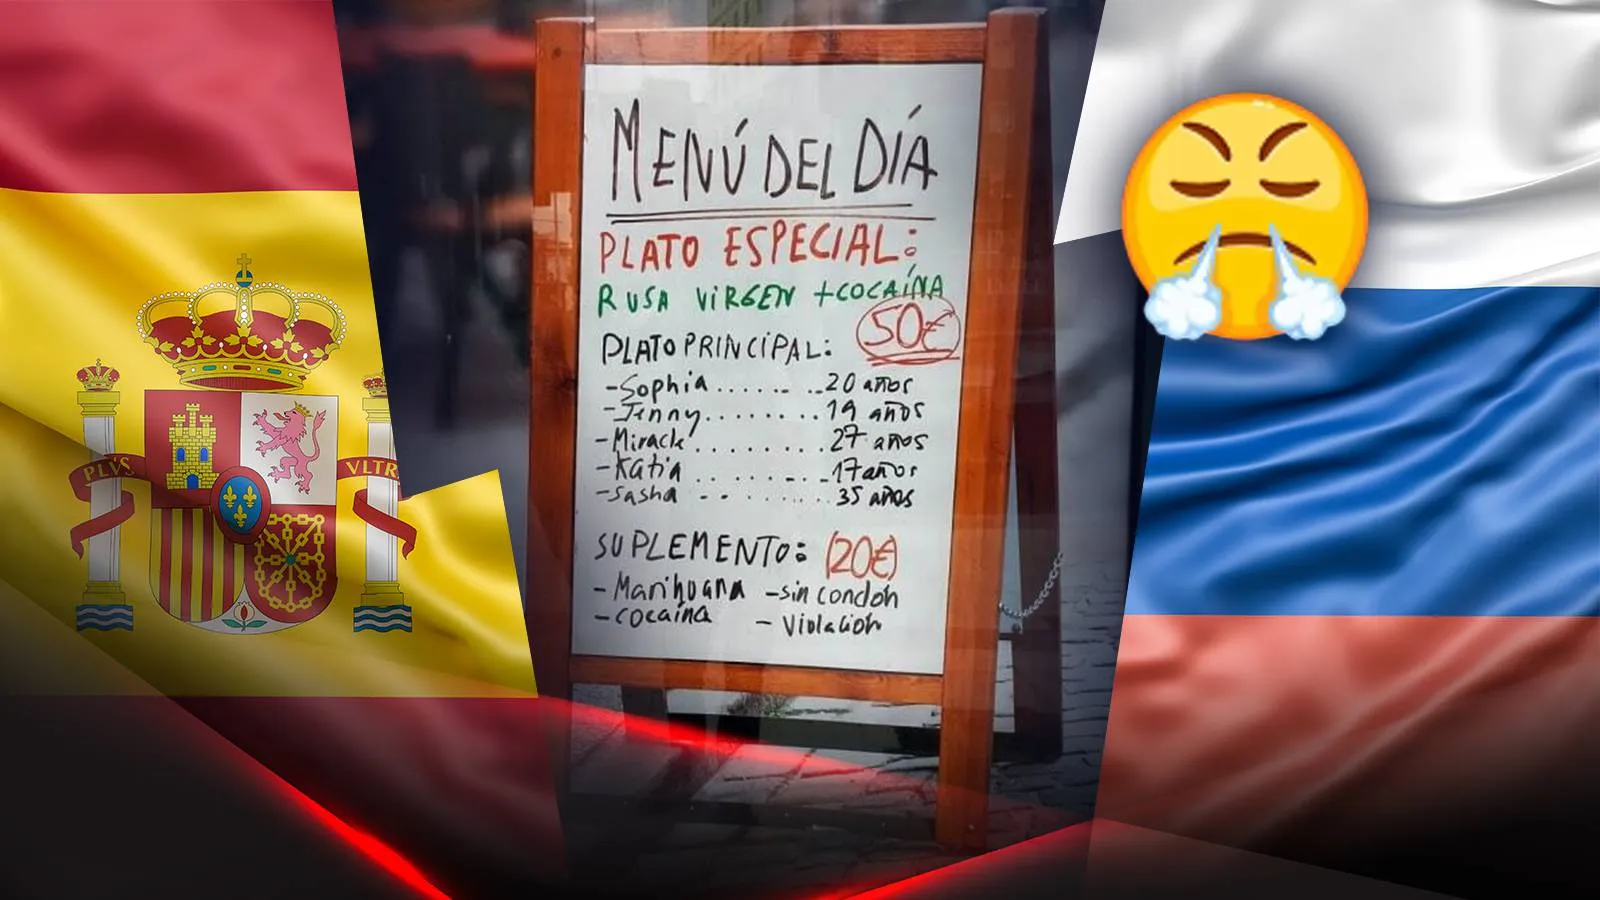 MENÚ DEL DÍA
PLATO ESPECIAL:
RUSA VIRGEN +COCAÍNA
50€
PLATO PRINCIPAL:
-Sophia ......... 20 años
-Jenny ......... 19 años
-Miracle ......... 27 años
-Katia ......... 17 años
-Sasha ......... 35 años
SUPLEMENTO: (20€)
-Marihuana -sin condón
-cocaína - Violación
PLVS
VLTR